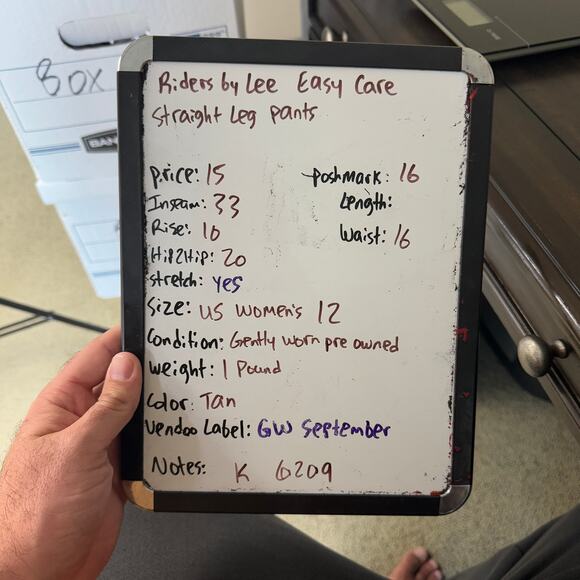 BOX
BAN
Riders by Lee Easy Care
Straight Leg pants
Price: 15
Poshmark: 16
Inseam: 33
Length:
Rise: 10
Waist: 16
Hip2Hip: 20
stretch: yes
Size: US Women's 12
Condition: Gently worn pre owned
Weight: 1 Pound
Color: Tan
Vendoo Label: GW September
Notes: K 6209